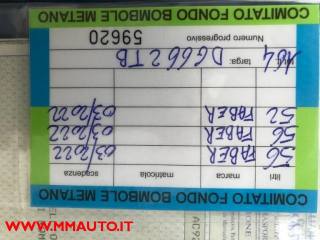 COMITATO FONDO BOMBOLE METANO
litri marca matricola scadenza
56 FABER 03/2022
56 FABER 03/2022
52 FABER 03/2022
targa: DG662TB
Numero progressivo 59620
COMITATO FONDO BOMBOLE METANO
www.MMAUTO.it